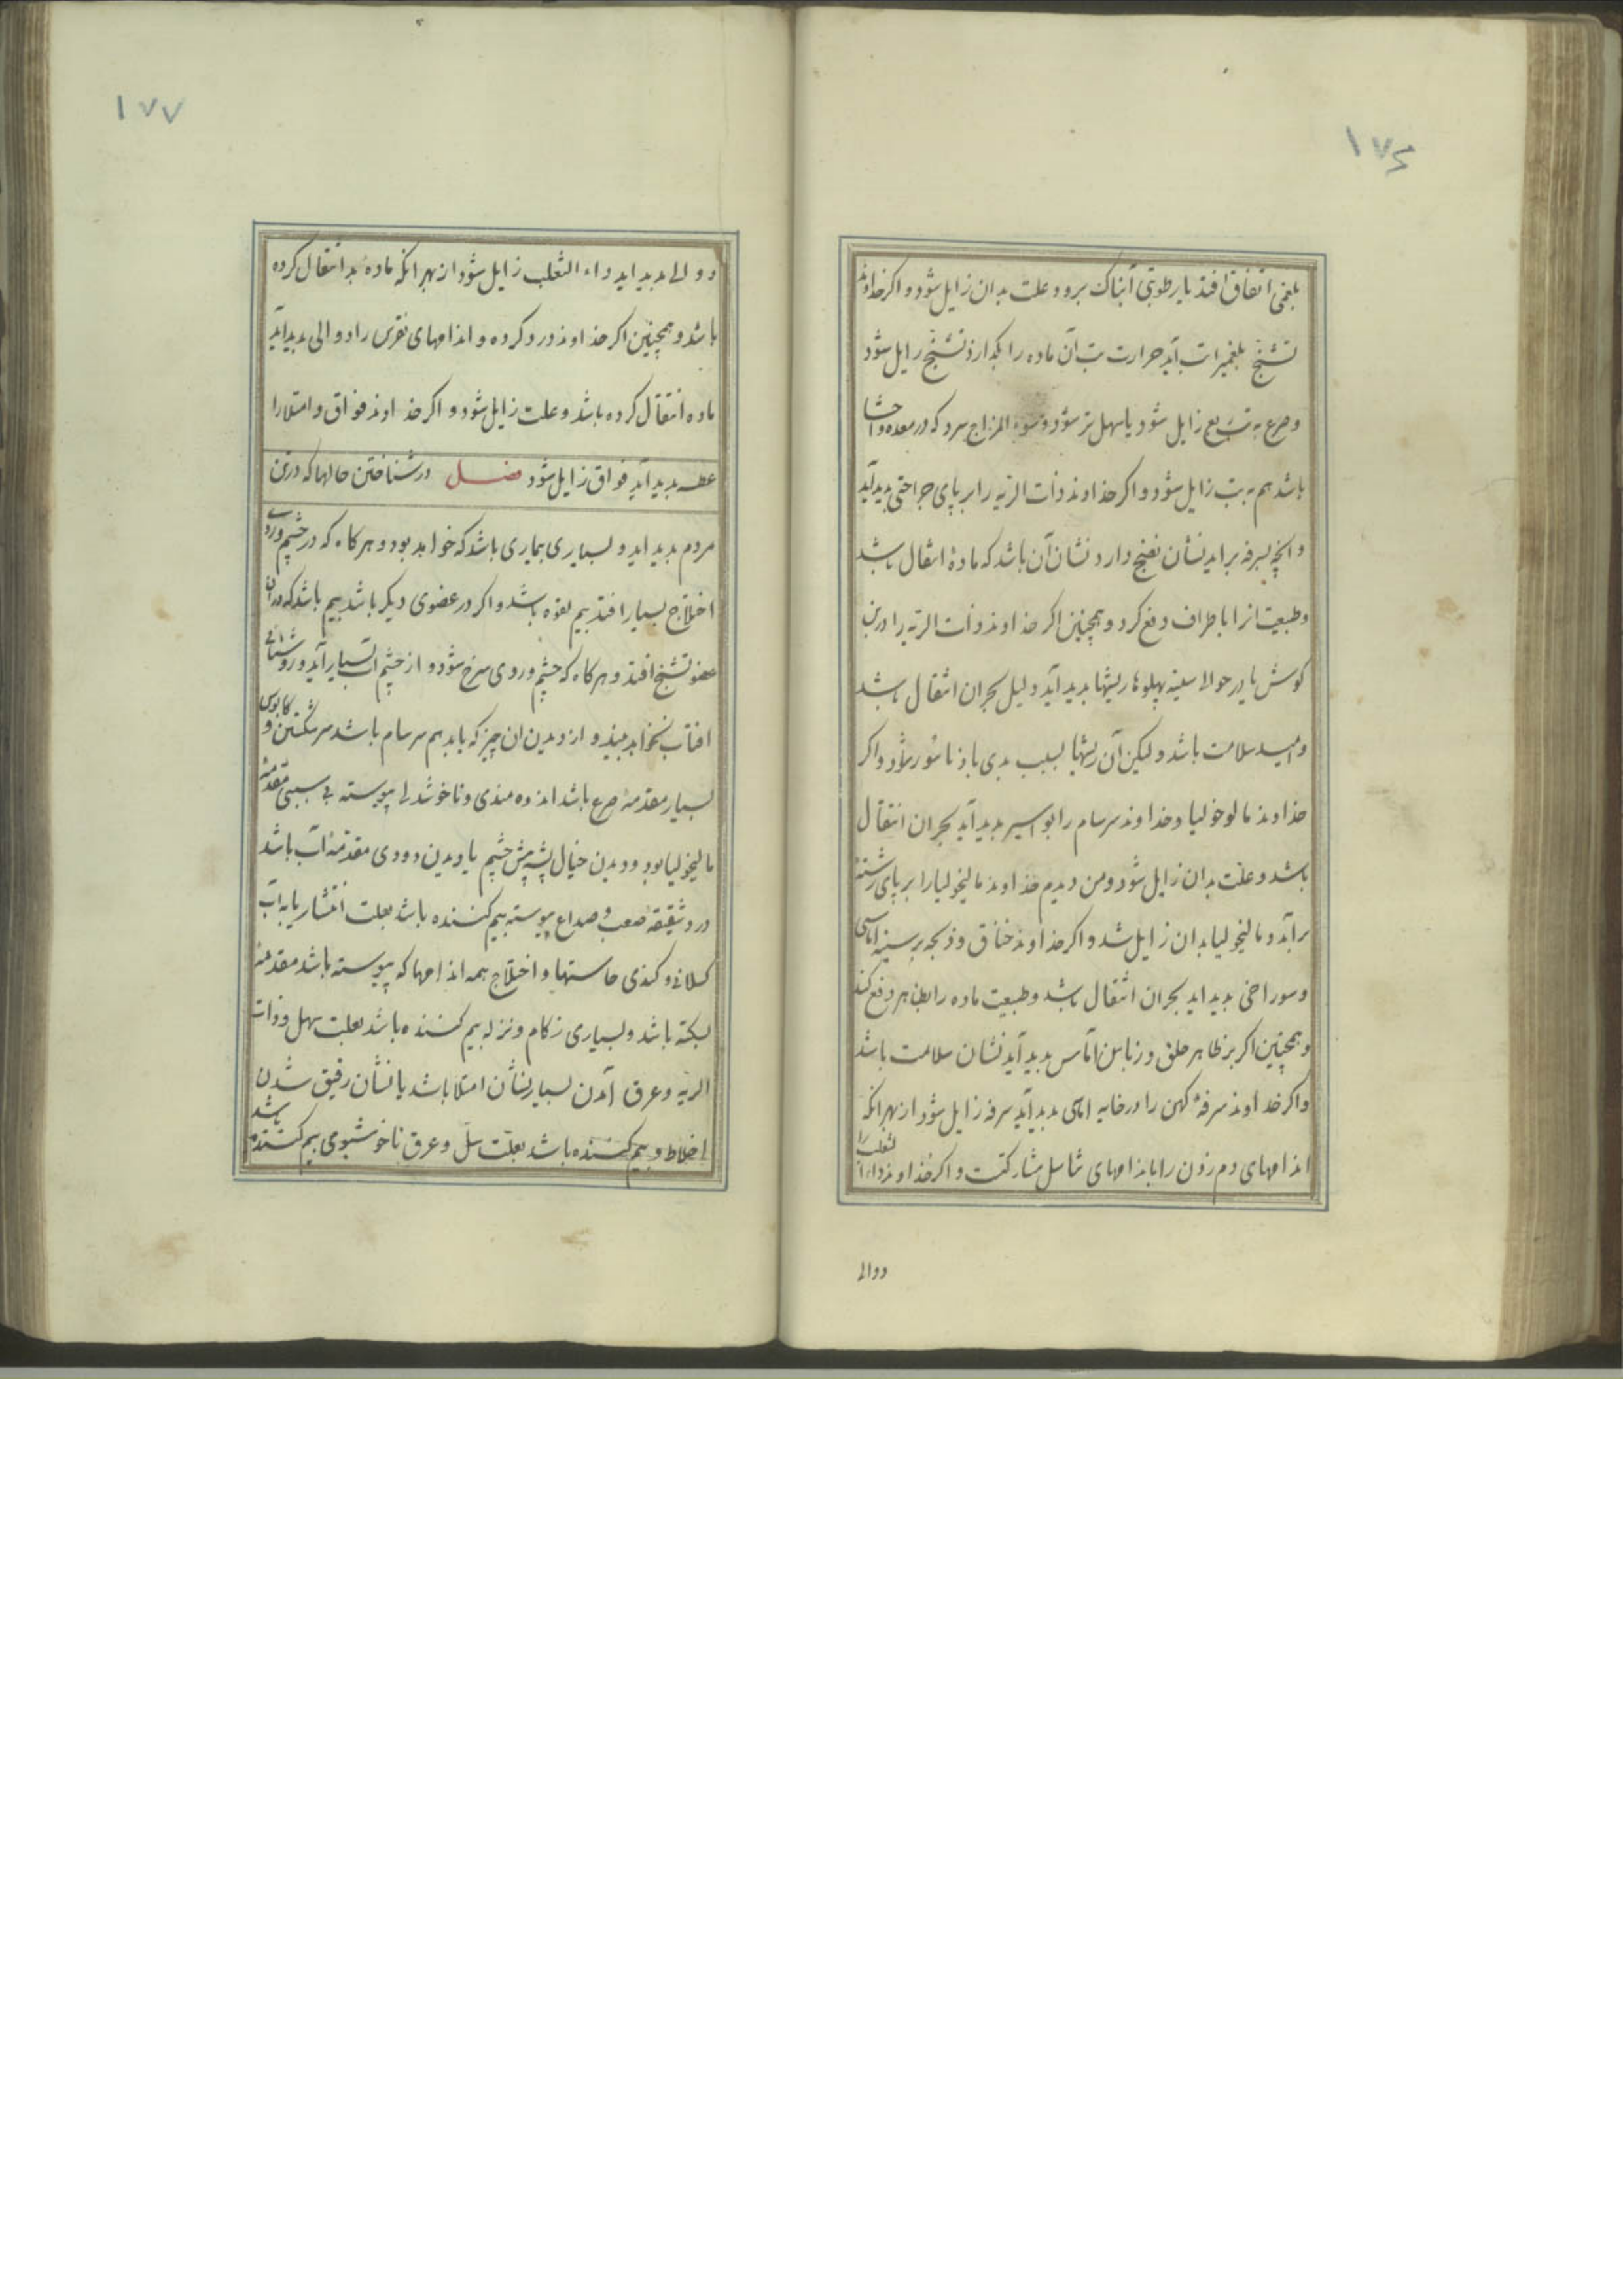 ۱۷۶
بلغمی اتفاق افتد یا رطوبتی آبناک برود علت بدان زایل شود و اکر خداوند
تشنج بلغمیرا تب آید حرارت تب آن ماده را بکدازد تشنج زایل شود
و صرع به تب ربع زایل شود یا سهل تر شود و سوء المزاج سرد که در معده و احشا
باشد هم به تب زایل شود و اکر خداوند ذات الریه را بر پای جراحتی بدید آید
و انچه بسرفه براید نشان نضج دارد نشان آن باشد که مادهٔ انتقال باشد
و طبیعت انرا باطراف دفع کرد و همچنین اکر خداوند ذات الریه را در بن
کوش یا در حوالی سینه پهلوها ریشها بدید آید دلیل بحران انتقال باشد
و امید سلامت باشد ولیکن آن ریشها بسبب بدی باذ ناسور شود و اکر
خداوند مالوخولیا و خداوند سرسام را بواسیر بدید آید بحران انتقال
باشد و علت بدان زایل شود و من دیدم خداوند مالیخولیا را بر پای رشته
برآمد و مالیخولیا بدان زایل شد و اکر خداوند خناق و ذبحه بر سینه اماسی
و سوراخی بدید اید بحران انتقال باشد و طبیعت ماده را بظاهر دفع کند
و همچنین اکر بر ظاهر حلق و زنابن اماس بدید آید نشان سلامت باشد
و اکر خداوند سرفهٔ کهن را در خایه اماسی بدید آید سرفه زایل شود از بهر انکه
اندامهای دم زدن را با اندامهای تناسل مشارکتست و اکر خداوند داء الثعلب را
دوالی
۱۷۷
دوالی بدید اید داء الثعلب زایل شود از بهر انکه ماده بد انتقال کرده
باشد و همچنین اکر خداوند درد کرده و اندامهای نقرس را دوالی بدید آید
ماده انتقال کرده باشد و علت زایل شود و اکر خداوند فواق و امتلا را
عطسه بدید آید فواق زایل شود فصل در شناختن حالها که در تن
مردم بدید اید و بسیاری بیماری باشد که خواهد بود و هر کاه که در چشم و روی
اختلاج بسیار افتد بیم لقوه باشد و اکر در عضوی دیکر باشد بیم باشد که دران
عضو تشنج افتد و هر کاه که چشم و روی سرخ شود و از چشم اب بسیار آید و روشنائی
افتاب نخواهد بیند و از دیدن ان چیز که یابد بیم سرسام باشد سرکشتن و کابوس
بسیار مقدمهٔ صرع باشد اندوه مندی و ناخوشدلی پیوسته بی سببی مقدمهٔ
مالیخولیا بود و دیدن خیال پشه پیش چشم یا دیدن دودی مقدمهٔ آب باشد
درد شقیقهٔ صعب و صداع پیوسته بیم کننده باشد بعلت انتشار یا به آب
کسلانی و کندی حاستها و اختلاج همه اندامها که پیوسته باشد مقدمهٔ
سکته باشد و بسیاری زکام و نزله بیم کننده باشد بعلت سل و ذات
الریه و عرق آمدن بسیار نشان امتلا باشد یا نشان رقیق شدن
اخلاط و بیم کننده باشد بعلت سل و عرق ناخوشبوی بیم کننده باشد